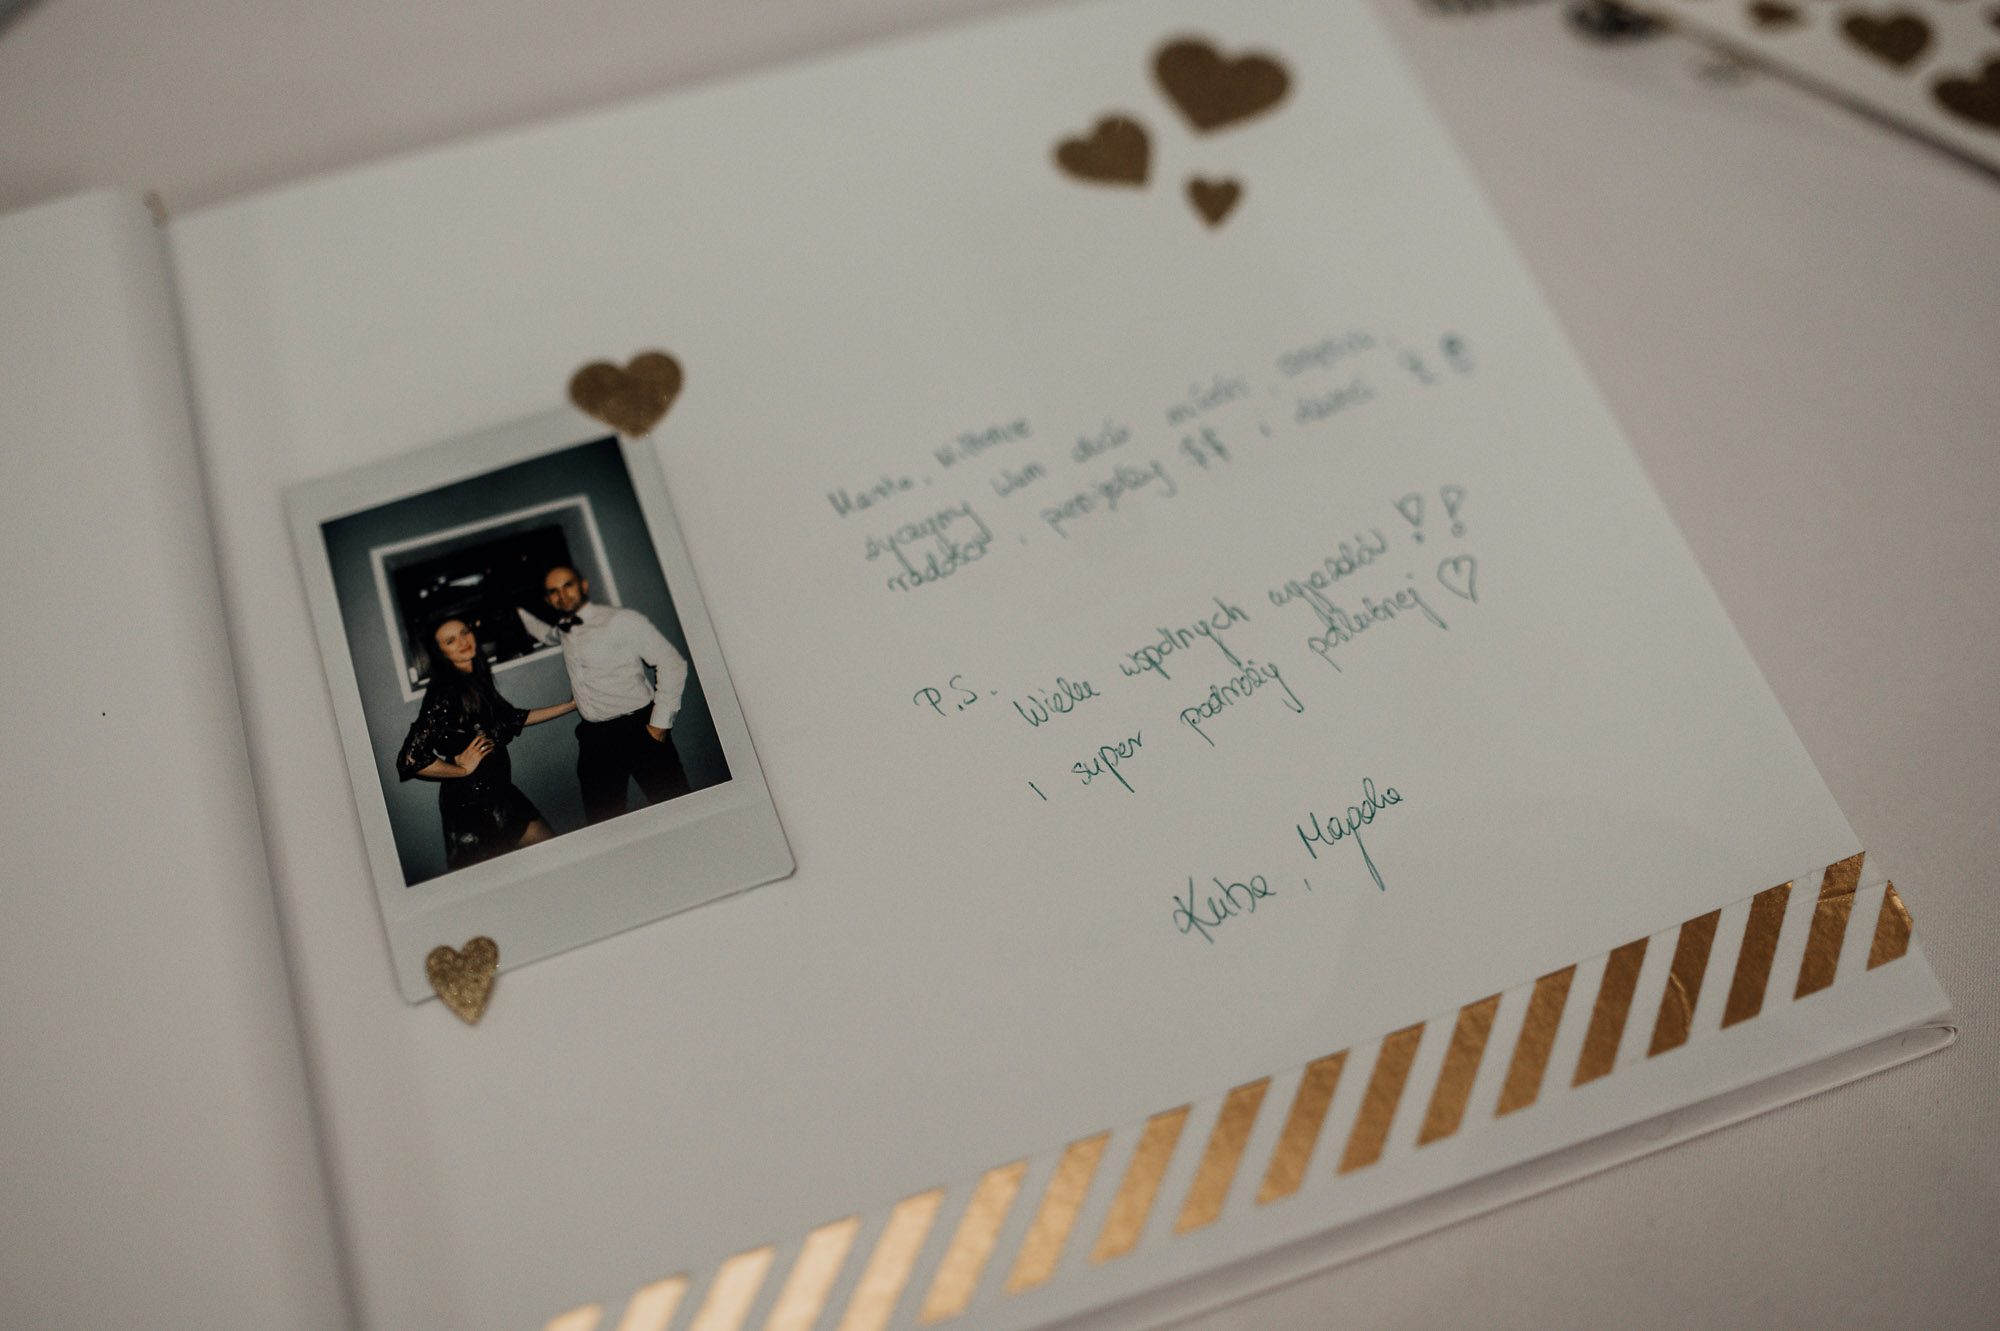 życzymy Wam dużo miłości,
radości, pieniędzy $$ i dzieci
P.S. Wielu wspólnych wyjazdów!!
i super podróży poślubnej ♡
Kuba, Magda